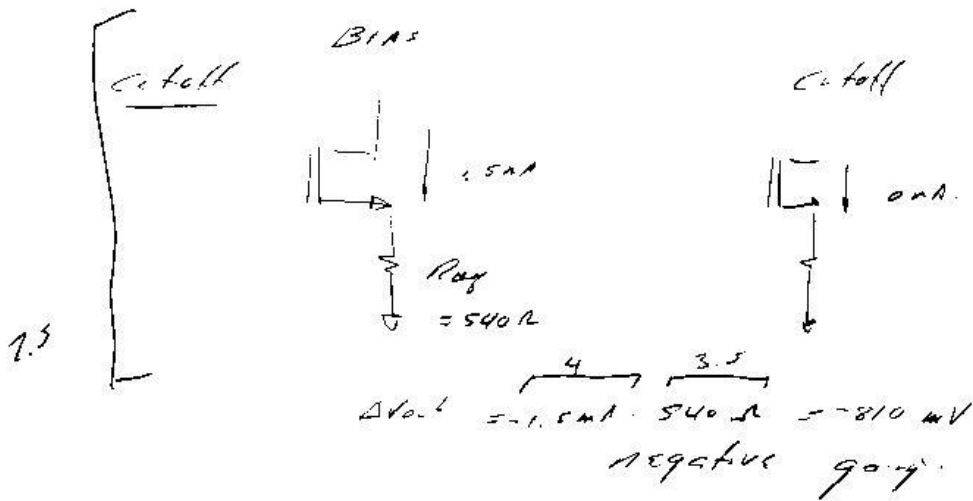 BIAS
Cutoff Cutoff
1.5mA 0mA.
Req
= 540Ω
7.5
4 3.5
ΔVout = -1.5mA · 540Ω = -810 mV
negative going.